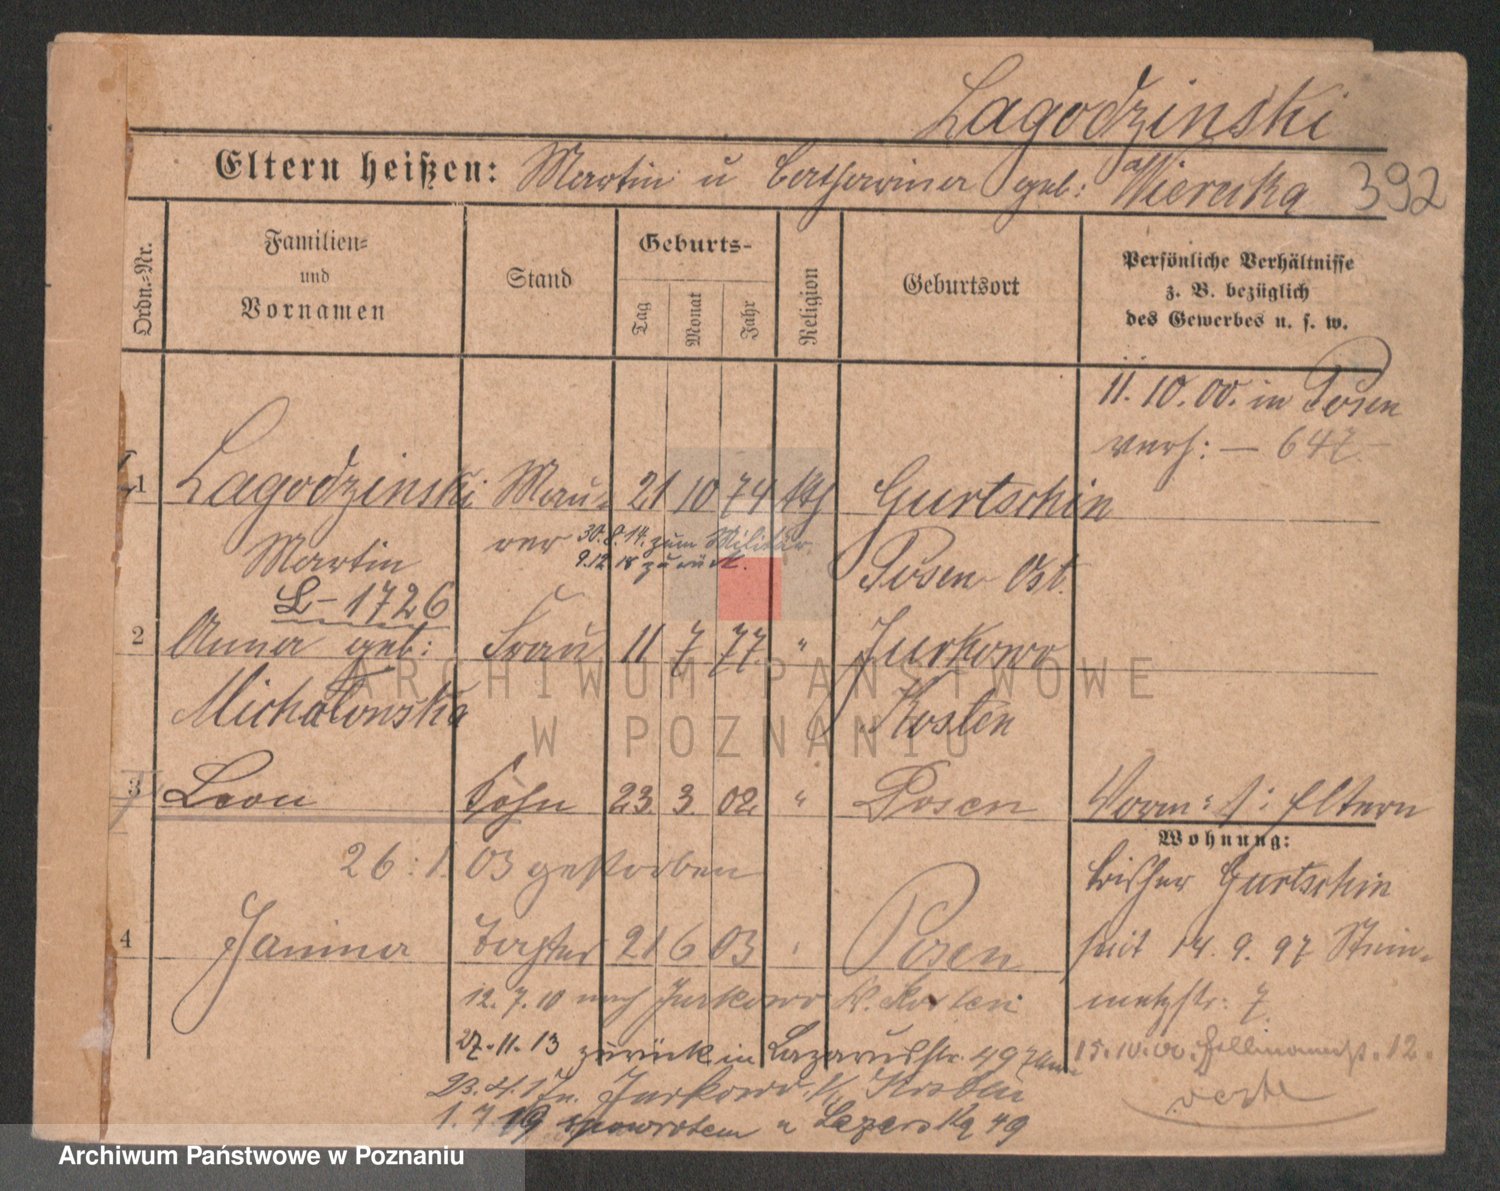 Lagodzinski
Eltern heißen: Martin u Catharina geb: Wierucka 392
Ordn.-Nr.
Familien-
und
Vornamen
Stand
Geburts-
Tag Monat Jahr
Religion
Geburtsort
Persönliche Verhältnisse
z. B. bezüglich
des Gewerbes u. s. w.
11. 10. 00. in Posen
verh: — 647.
1 Lagodzinski Mau- 21 10 74 kth Gurtschin
Martin rer 30.8.14. zum Militär Posen Ost.
9.12.18 zurück.
L-1726
2 Anna geb: Frau 11 7 77 " Jurkowo
Michalonska Kosten
3 Leon Sohn 23. 3. 02 " Posen Vorm: d: Eltern
26: 1. 03 gestorben
Wohnung:
bisher Gurtschin
4 Janina Tochter 21 6 03 " Posen seit 14. 9. 97 Stein-
12. 7. 10 nach Jurkowo K. Kosten metzstr: 7.
27. 11. 13 zurück in Lazarusstr. 49 15.10.00. 12.
23. 4. 17 n. Jurkowo
1. 7. 19 spowrotem u Lazarska 49
ARCHIWUM PAŃSTWOWE
W POZNANIU
Archiwum Państwowe w Poznaniu